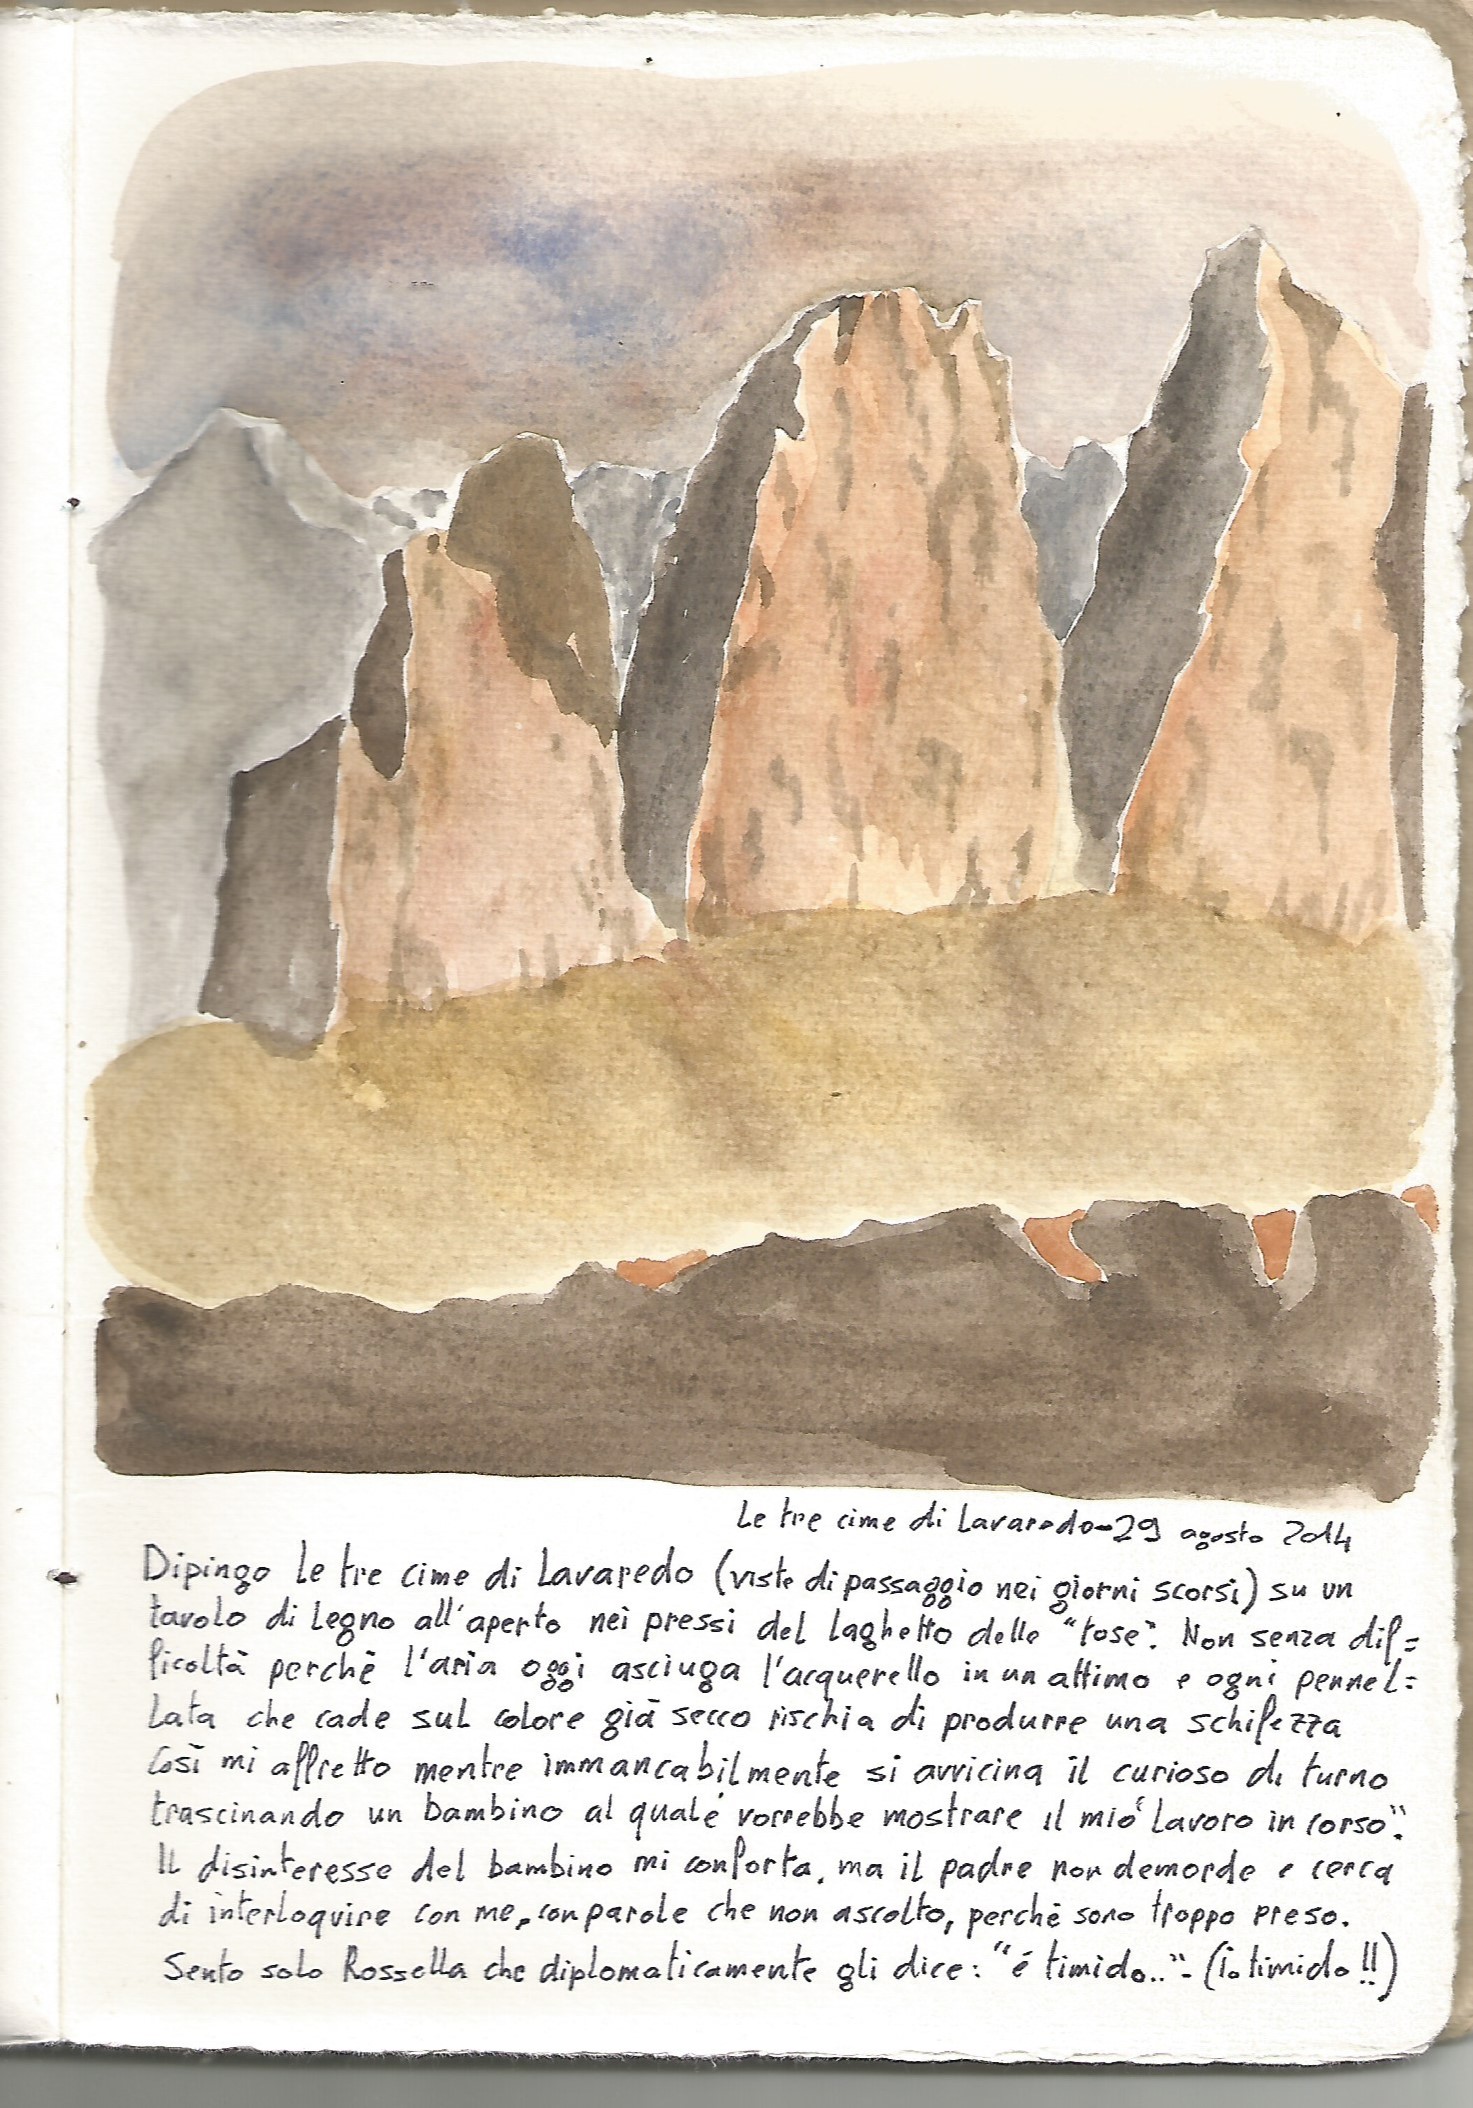 Le tre cime di Lavaredo-29 agosto 2014
Dipingo le tre cime di Lavaredo (viste di passaggio nei giorni scorsi) su un
tavolo di legno all'aperto nei pressi del laghetto delle "tose". Non senza dif=
ficoltà perchè l'aria oggi asciuga l'acquerello in un attimo e ogni pennel=
lata che cade sul colore già secco rischia di produrre una schifezza
Così mi affretto mentre immancabilmente si avvicina il curioso di turno
trascinando un bambino al quale vorrebbe mostrare il mio "lavoro in corso".
Il disinteresse del bambino mi conforta, ma il padre non demorde e cerca
di interloquire con me, con parole che non ascolto, perchè sono troppo preso.
Sento solo Rossella che diplomaticamente gli dice: "é timido.."- (io timido!!)